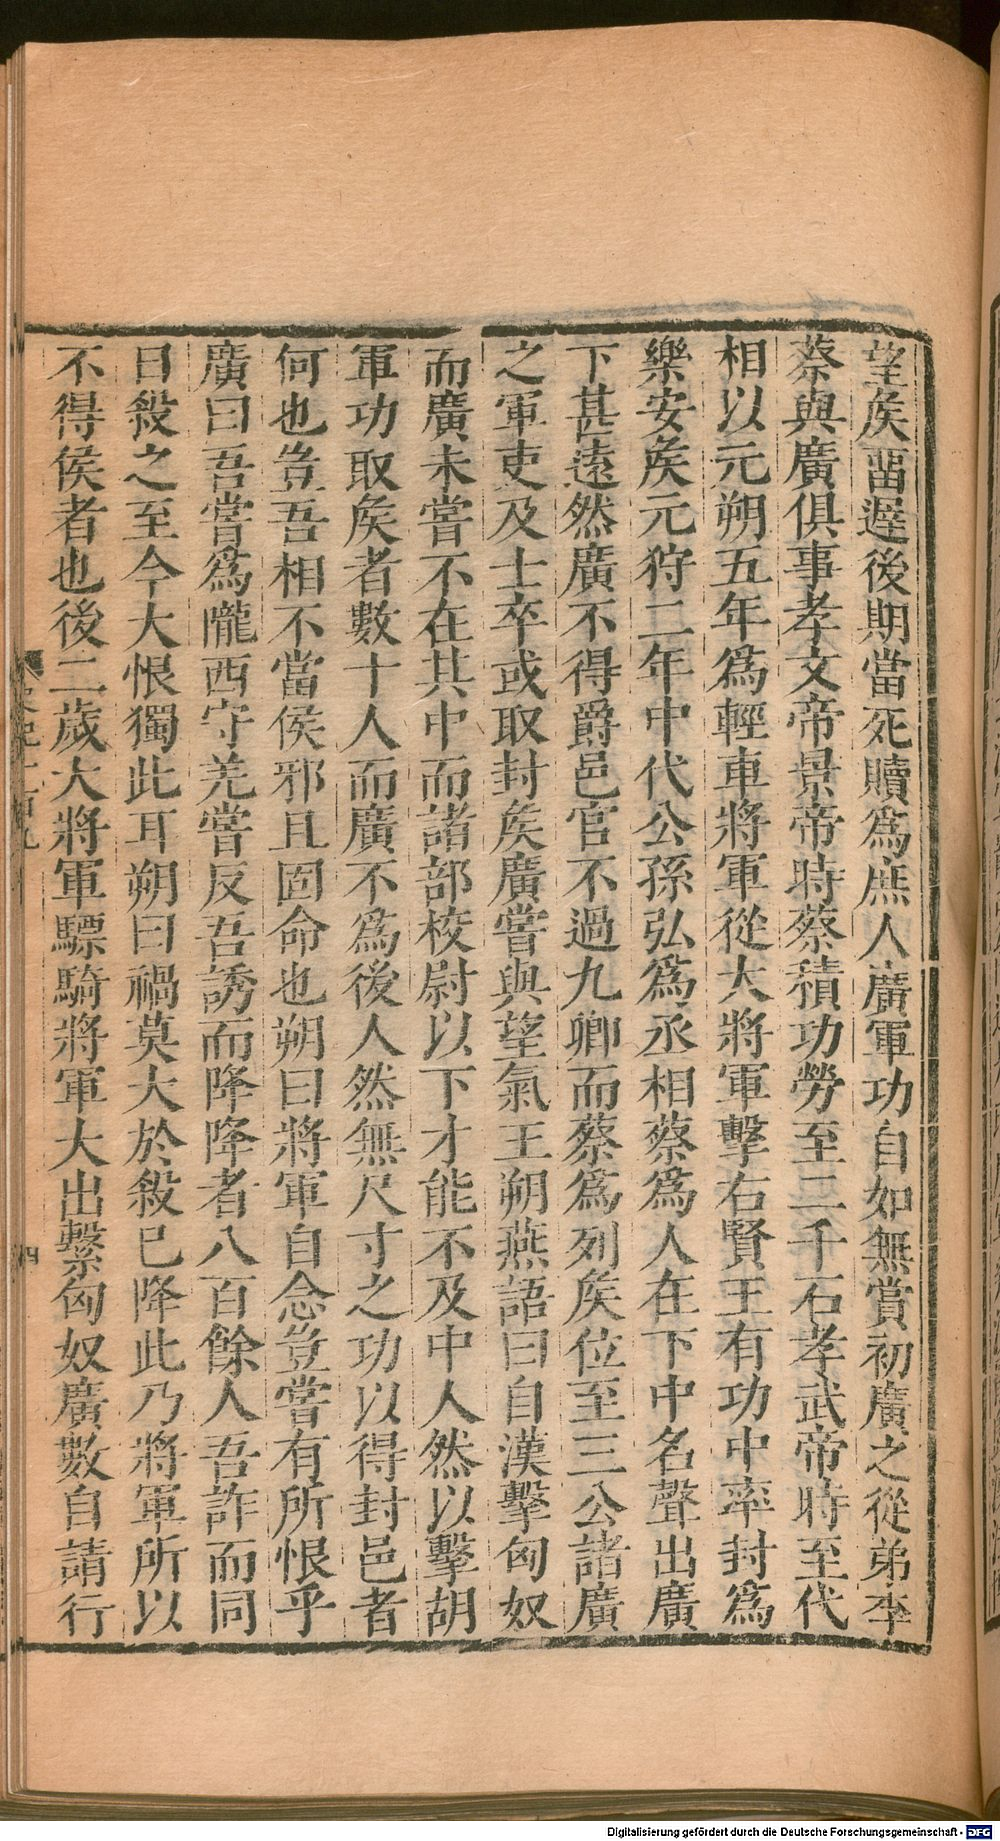 望矦畱遲後期當死贖爲庶人廣軍功自如無賞初廣之從弟李
蔡與廣俱事孝文帝景帝時蔡積功勞至二千石孝武帝時至代
相以元朔五年爲輕車將軍從大將軍擊右賢王有功中率封爲
樂安矦元狩二年中代公孫弘爲丞相蔡爲人在下中名聲出廣
下甚遠然廣不得爵邑官不過九卿而蔡爲列矦位至三公諸廣
之軍吏及士卒或取封矦廣嘗與望氣王朔燕語曰自漢擊匈奴
而廣未嘗不在其中而諸部校尉以下才能不及中人然以擊胡
軍功取矦者數十人而廣不爲後人然無尺寸之功以得封邑者
何也豈吾相不當侯邪且固命也朔曰將軍自念豈嘗有所恨乎
廣曰吾嘗爲隴西守羌嘗反吾誘而降降者八百餘人吾詐而同
日殺之至今大恨獨此耳朔曰禍莫大於殺已降此乃將軍所以
不得侯者也後二歲大將軍驃騎將軍大出擊匈奴廣數自請行
四
Digitalisierung gefördert durch die Deutsche Forschungsgemeinschaft - DFG